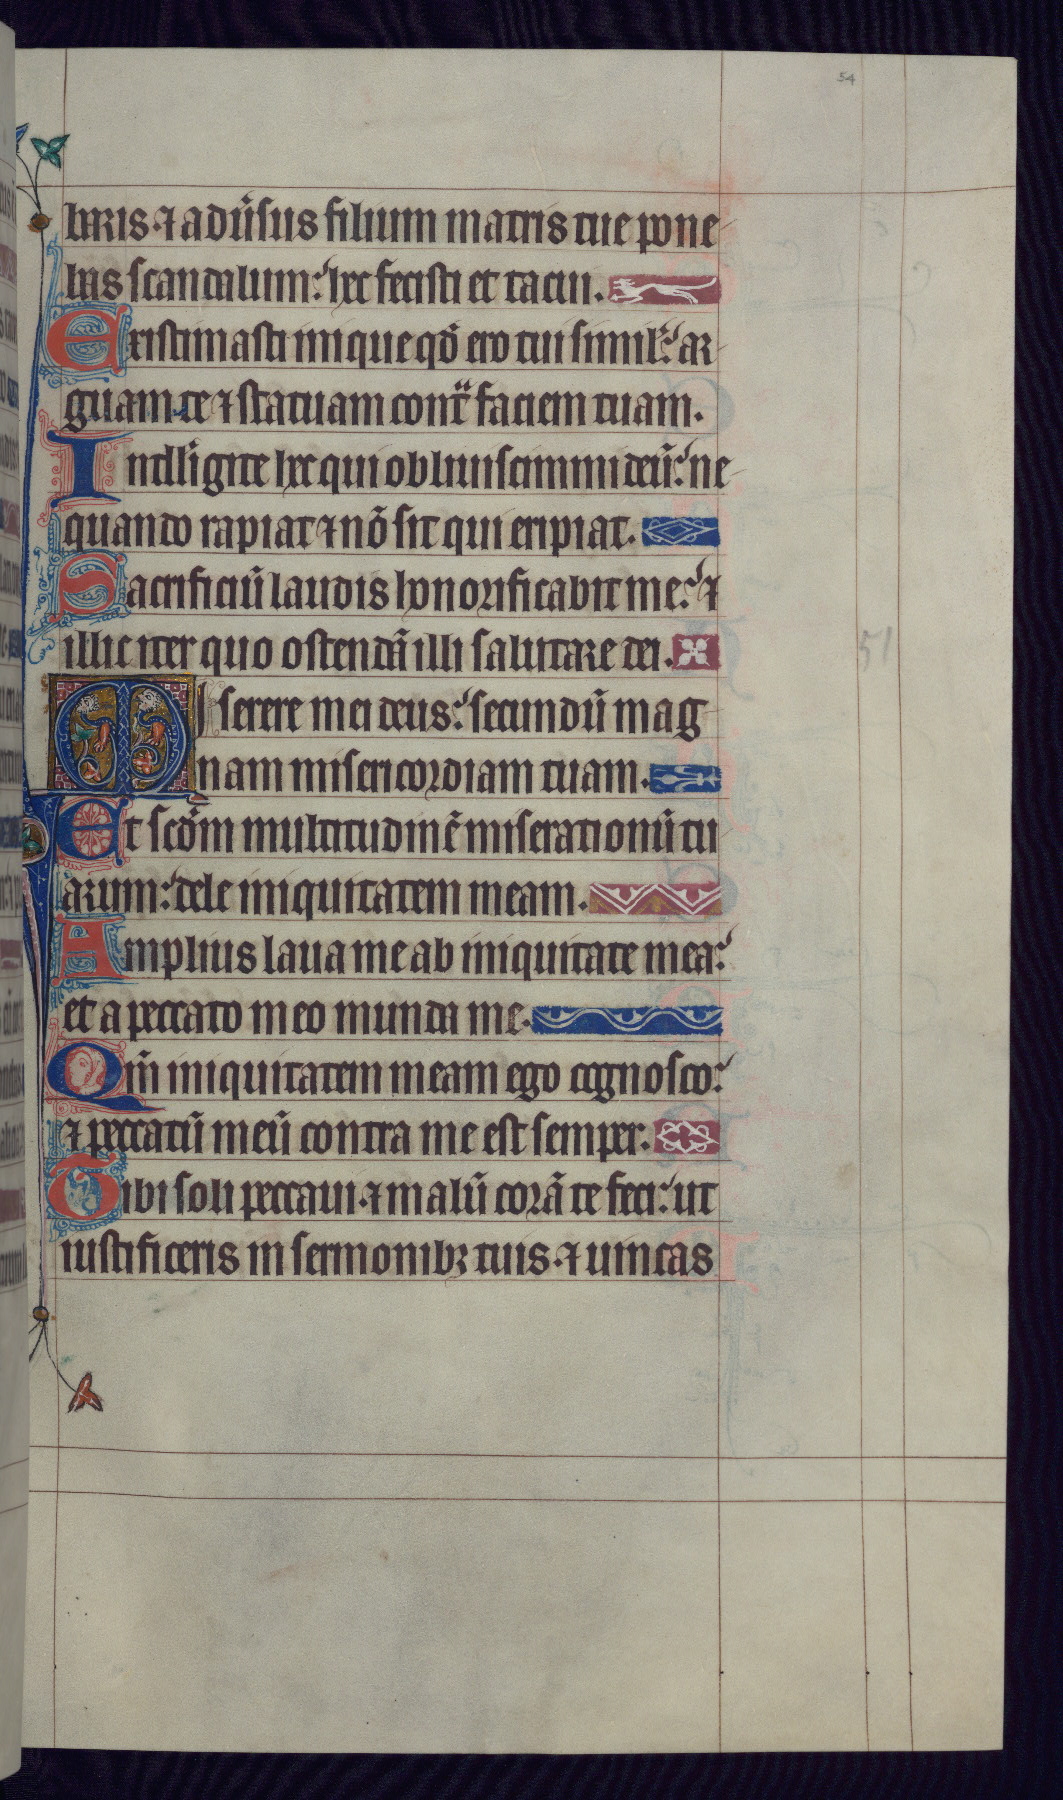 54
baris. ⁊ adũsus filium matris tue pone
bas scandalum: hec fecisti et tacui.
Existimasti inique qď ero tui simil̕: ar
guam te ⁊ statuam cont̃ faciem tuam.
Intelligite hec qui obliuiscimini deũ: ne
quando rapiat ⁊ nõ sit qui eripiat.
Sacrificiũ laudis honorificabit me: ⁊
illic iter quo ostendã illi salutare dei.
51
Miserere mei deus: secundũ mag
nam misericordiam tuam.
Et scďm multitudinẽ miserationũ tu
arum: dele iniquitatem meam.
Amplius laua me ab iniquitate mea:
et a peccato meo munda me.
Qm̃ iniquitatem meam ego cognosco:
⁊ peccatũ meũ contra me est semper.
Tibi soli peccaui. ⁊ malũ corã te feci: ut
iustificeris in sermonibꝫ tuis. ⁊ uincas